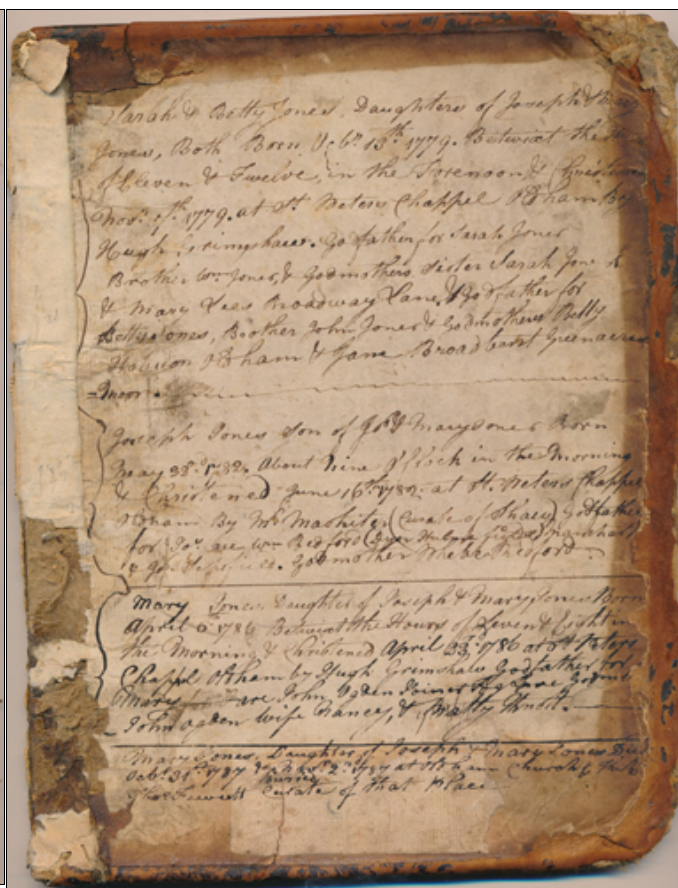 Sarah & Betty Jones, Daughters of Joseph & Mary
Jones, Both Born Octbr 13th 1779. Betwixt the
of Eleven & Twelve, in the Forenoon & Christened
Novr 7th 1779. at St Peters Chappel Oldham By
Hugh Grimshaw. Godfather for Sarah Jones
Brother Wm Jones, & Godmothers Sister Sarah Jones
& Mary Lees Broadway Lane, & Godfather for
Betty Jones, Brother John Jones & Godmothers Betty
Oldham & Jane Broadbent Greenacres
Moor
Joseph Jones Son of Josh & Mary Jones Born
May 28th 1782 About Nine O'Clock in the Morning
& Christened June 16th 1782 at St. Peters Chappel
Oldham By Mr (Curate of Shaw) Godfathers
for Jos. are, Wm Bedford
& Godmother Phebe Bedford
Mary Jones Daughter of Joseph & Mary Jones Born
April 6th 1786 Betwixt the Hours of Seven & Eight in
the Morning & Christened April 23d 1786 at St Peters
Chappl Oldham by Hugh Grimshaw Godfather for
Mary are John Ogden Joiner
John Ogden Wife Nancy, & Matty
Mary Jones, Daughter of Joseph & Mary Jones Died
Octbr 31st 1787 & Buried Novr 2nd 1787 at Oldham Church by
Thos Fawcett Curate of that Place